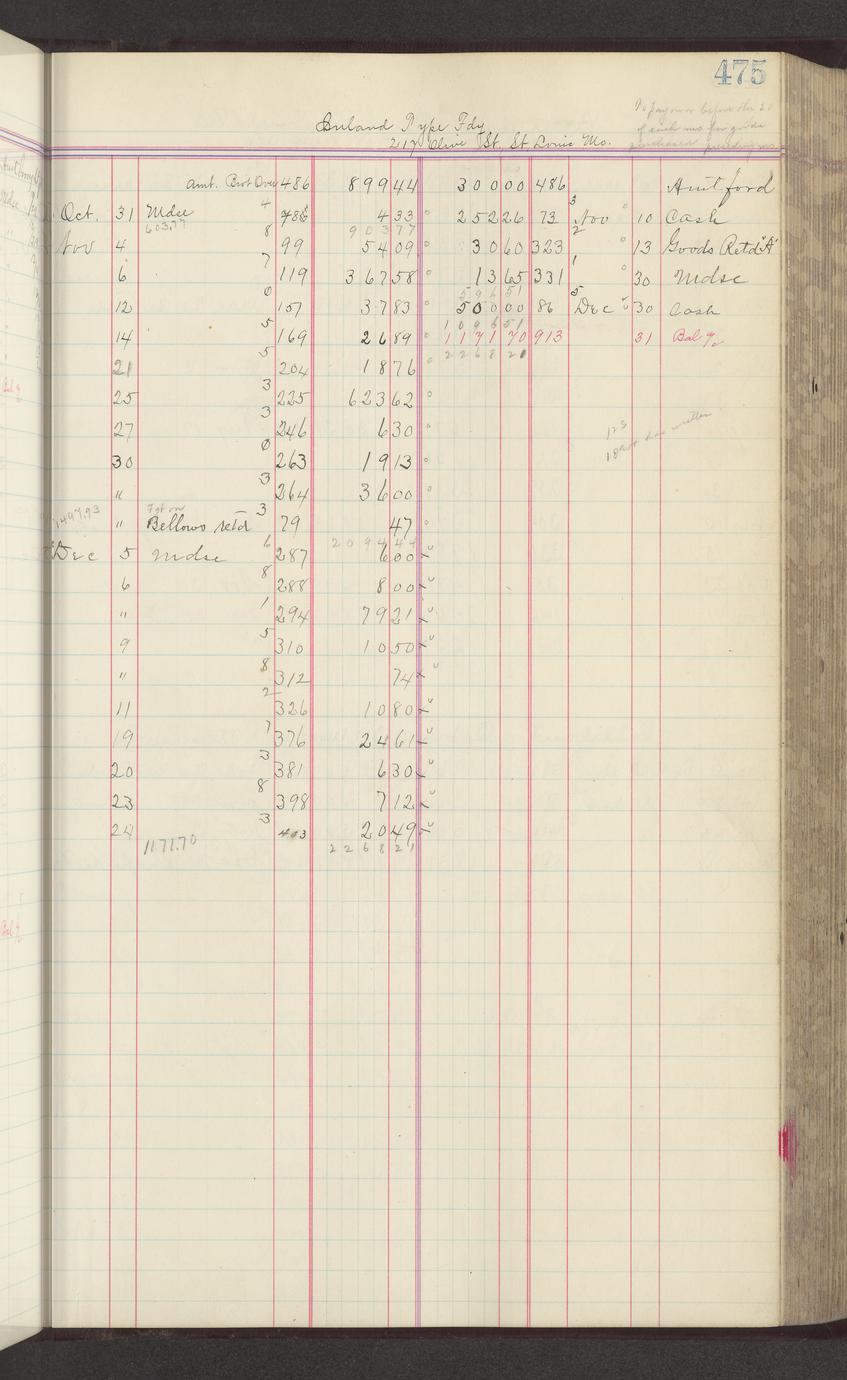 475
To pay on or before the 20
of each mo for goods
purchased preceding mo.
Inland Type Fdy
217 Olive St. St. Louis Mo.
Amt. Brot Over 486 899 44 300 00 486 Amt ford
Oct. 31 Mdse 4 486 4 33 252 26 73 3 Nov 10 Cash
603.77 903 77
Nov 4 8 99 54 09 30 60 323 2 13 Goods Retd "A"
6 7 119 367 58 13 65 331 1 30 Mdse
596 51
12 0 157 37 83 500 00 86 5 Dec 30 Cash
1096 51
14 5 169 26 89 1171 70 913 31 Bal %
2268 21
21 5 204 18 76
25 3 225 623 62
27 3 246 6 30
30 0 263 19 13
" 3 264 36 00
1497.93 " Fgt on Bellows retd 3 79 47
2094 44
Dec 5 Mdse 6 287 6 00
6 8 288 8 00
" 1 294 79 21
9 5 310 10 50
" 8 312 74
11 2 326 10 80
19 7 376 24 61
20 3 381 6 30
23 8 398 7 12
24 3 403 20 49
1171.70 2268 21
Bal %
Bal %